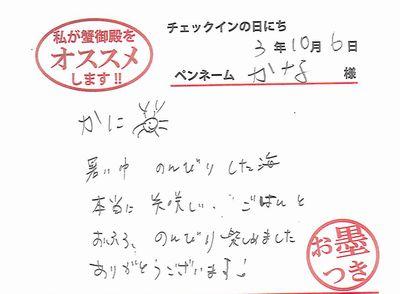 私が蟹御殿を
オススメ
します!!
チェックインの日にち
3年10月6日
ペンネーム かな 様
かに
暑い中 のんびりした海
本当に 美味しい ごはんと
おふろ、のんびり楽しめました
ありがとうございます!
お墨
つき